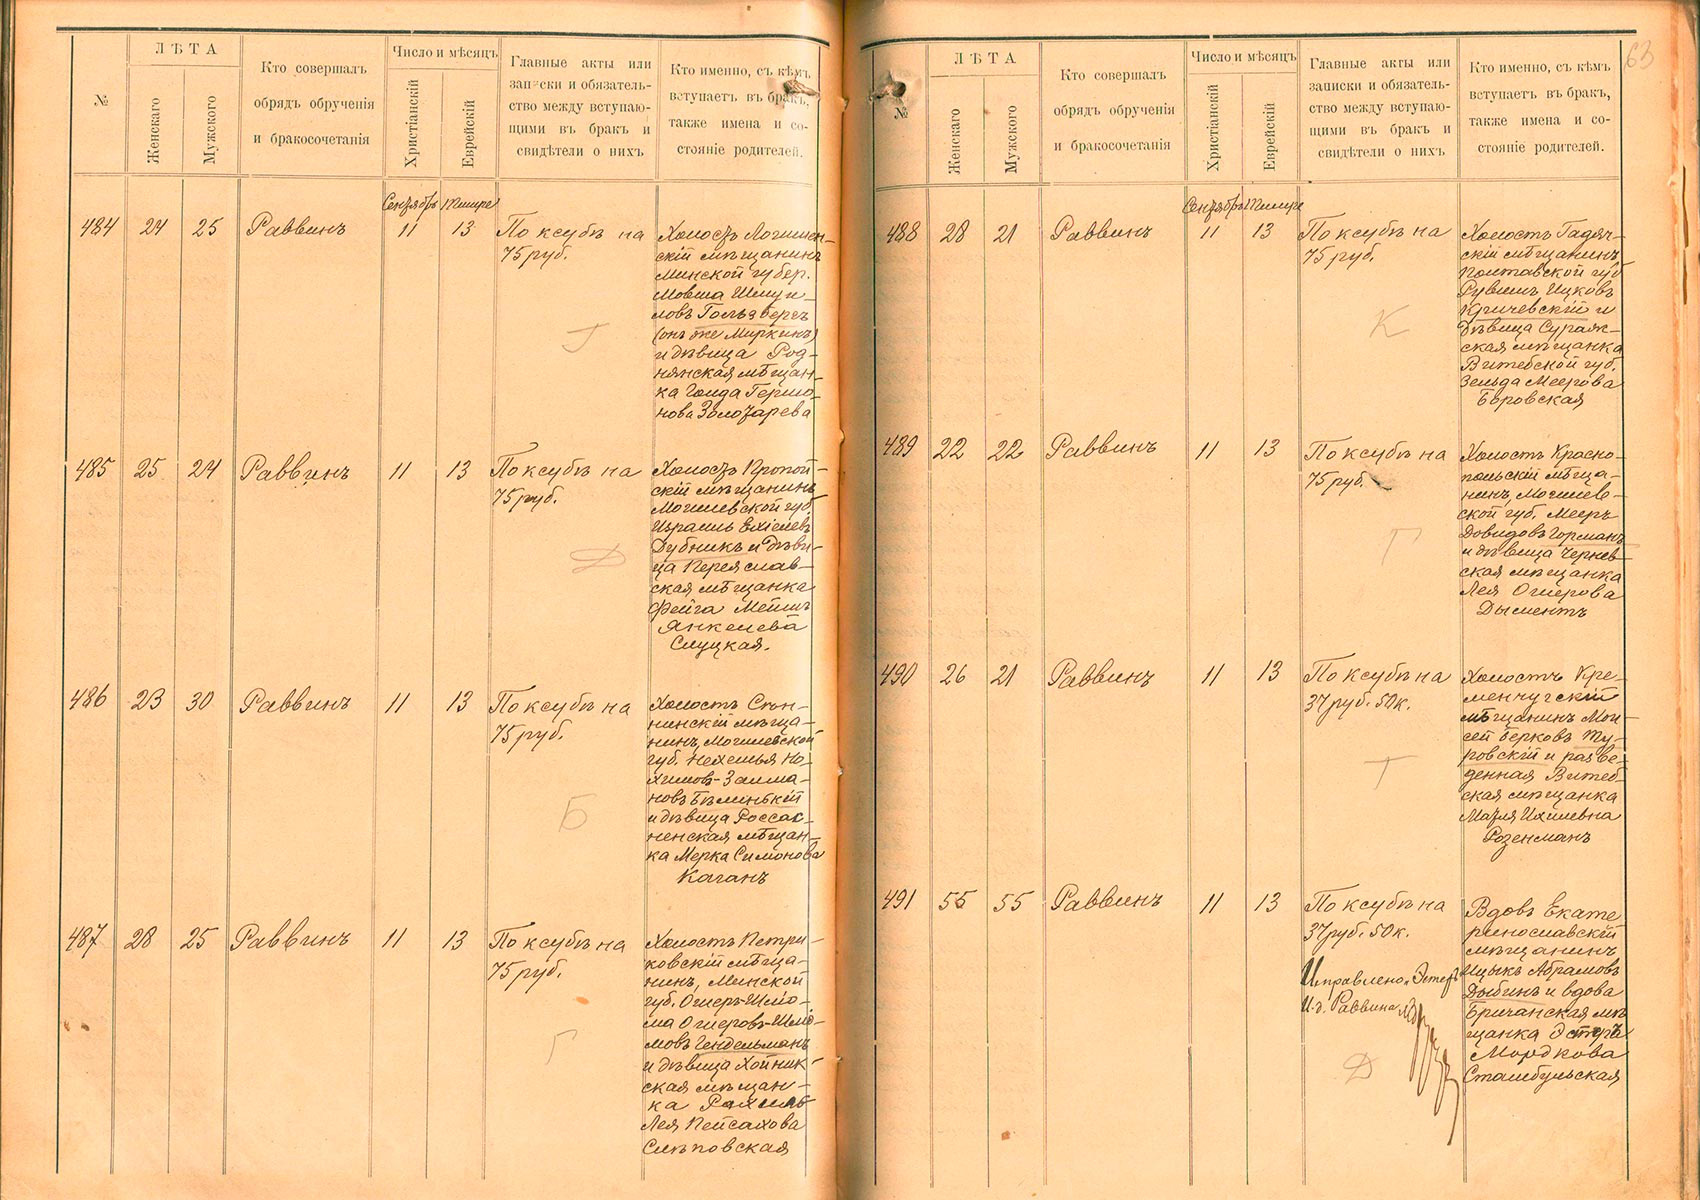 №
ЛѢТА
Женскаго
Мужского
Кто совершалъ
обрядъ обрученія
и бракосочетанія
Число и мѣсяцъ
Христіанскій
Еврейскій
Главные акты или
записки и обязатель-
ство между вступаю-
щими въ бракъ и
свидѣтели о нихъ
Кто именно, съ кѣмъ
вступаетъ въ бракъ,
также имена и со-
стояніе родителей.
Сентябрь Тишре
484 24 25 Раввинъ 11 13
По ксубѣ на
75 руб.
Холостъ Логишин-
скій мѣщанинъ
Минской губер.
Мовша Шмуи-
ловъ Гольдбергъ
(онъ же Миркинъ)
и дѣвица Род-
нянская мѣщан-
ка Голда Гершо-
нова Золотарева
Г
485 25 24 Раввинъ 11 13
По ксубѣ на
75 руб.
Холостъ Кропой-
скій мѣщанинъ
Могилевской губ.
Израиль Ехіелевъ
Дубникъ и дѣви-
ца Переяслав-
ская мѣщанка
Фейга Мейта
Янкелева
Слуцкая.
Д
486 23 30 Раввинъ 11 13
По ксубѣ на
75 руб.
Холостъ Сѣн-
нинскій мѣща-
нинъ, Могилевской
губ. Нехемья Но-
химов-Залма-
новъ Бѣлинькій
и дѣвица Россас-
ненская мѣщан-
ка Мерка Симонова
Каганъ
Б
487 28 25 Раввинъ 11 13
По ксубѣ на
75 руб.
Холостъ Петри-
ковскій мѣща-
нинъ, Минской
губ. Ошеръ-Шлё-
ма Ошеровъ-Шлiо-
мовъ Гендельманъ
и дѣвица Хойник-
ская мѣщан-
ка Рахиль
Лея Пейсахова
Слѣповская
Г
63
№
ЛѢТА
Женскаго
Мужского
Кто совершалъ
обрядъ обрученія
и бракосочетанія
Число и мѣсяцъ
Христіанскій
Еврейскій
Главные акты или
записки и обязатель-
ство между вступаю-
щими въ бракъ и
свидѣтели о нихъ
Кто именно, съ кѣмъ
вступаетъ въ бракъ,
также имена и со-
стояніе родителей.
Сентябрь Тишре
488 28 21 Раввинъ 11 13
По ксубѣ на
75 руб.
Холостъ Гадяч-
скій мѣщанинъ
Полтавской губ
Рувинъ Ицковъ
Кричевскій и
дѣвица Сураж-
ская мѣщанка
Витебской губ.
Зельда Меерова
Евровская
К
489 22 22 Раввинъ 11 13
По ксубѣ на
75 руб.
Холостъ Красно-
польскій мѣща-
нинъ, Могилев-
ской губ. Мееръ
Довидовъ Горманъ
и дѣвица Чернев-
ская мѣщанка
Лея Ошерова
Дыментъ
Г
490 26 21 Раввинъ 11 13
По ксубѣ на
37 руб. 50 к.
Холостъ Кре-
менчугскій
мѣщанинъ Мои-
сей Берковъ Ту-
ровскій и разве-
денная Витеб
ская мѣщанка
Мазля Ихилевна
Розенманъ
Т
491 55 55 Раввинъ 11 13
По ксубѣ на
37 руб. 50 к.
Исправлено „Эстеръ"
И. д. Раввина
Вдовъ Екате
ринославскій
мѣщанинъ
Ицыкъ Абрамовъ
Дыбинъ и вдова
Бричанская мѣ
щанка Эстеръ
Мордкова
Стамбульская
Д